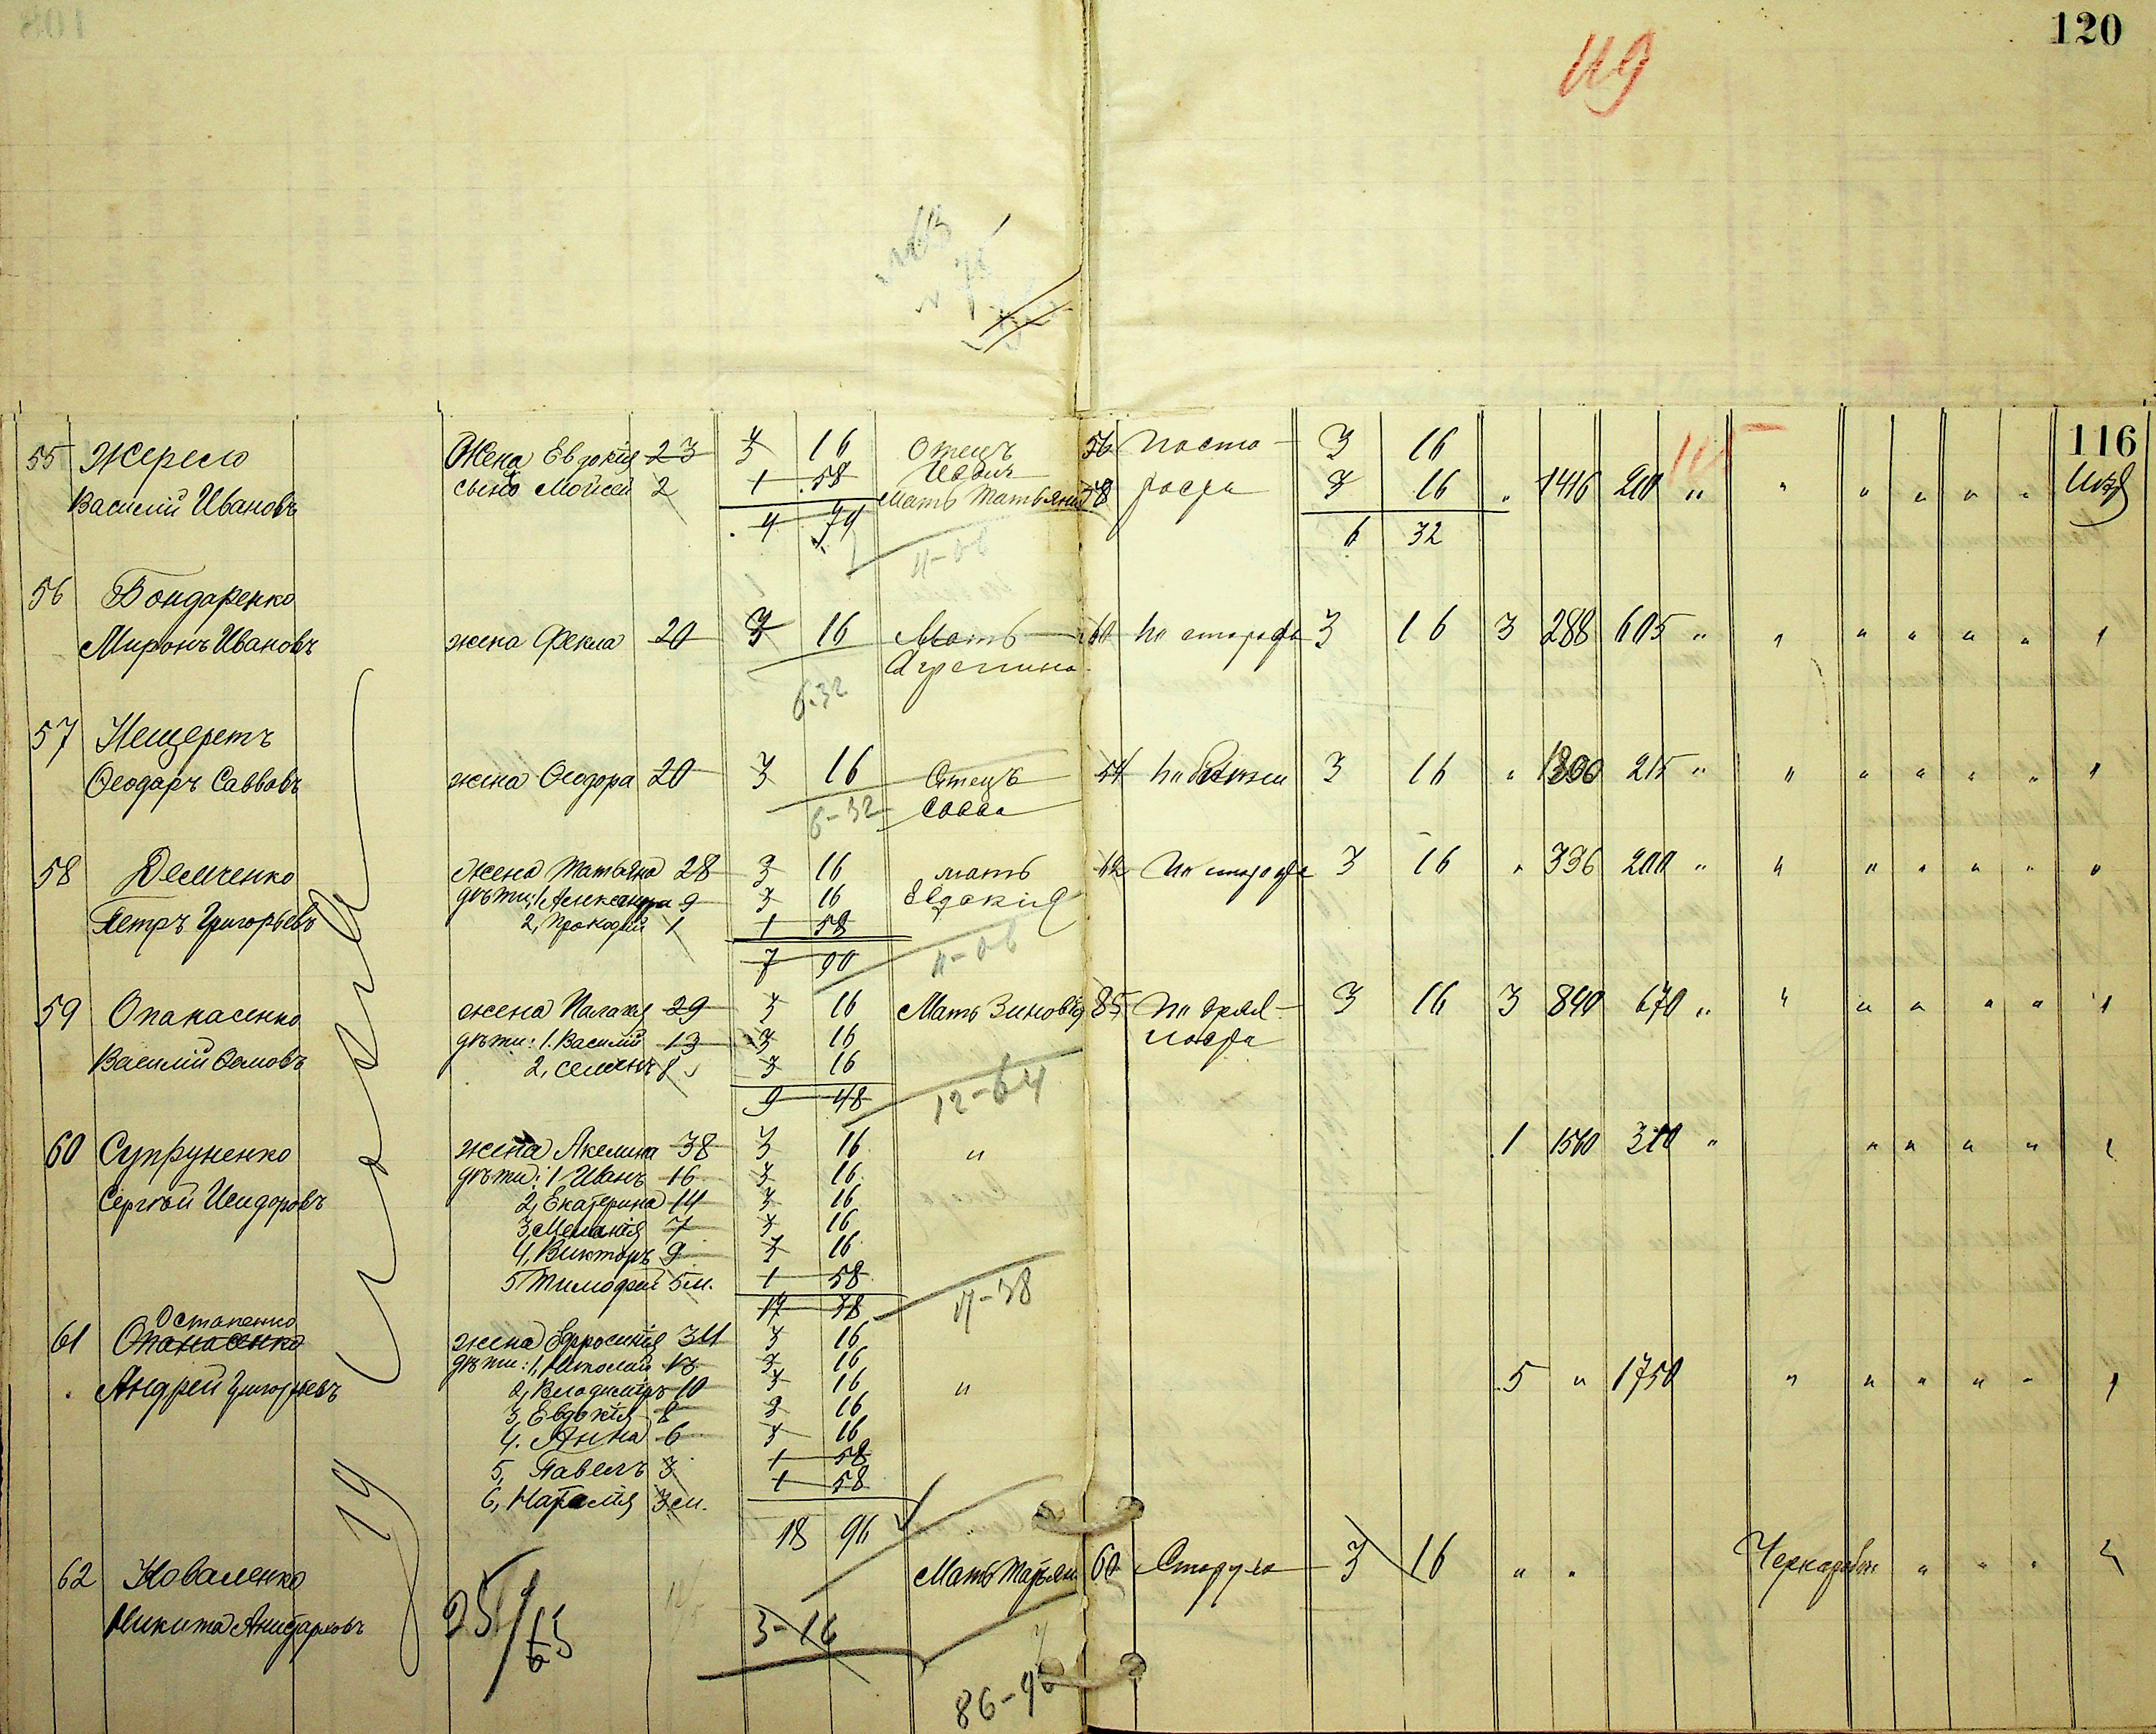 120
119
116
55 Жерело Жена Евдокія 23 3 16 Отецъ 56 По ста- 3 16
Василій Ивановъ сынъ Мойсей 2 1 58 Иванъ
Мать Татьяна 58 рости 3 16 „ 1416 200 „ „ „ „ „ „
4 74 6 32
11-06
56 Бондаренко
Миронъ Ивановъ жена Фекла 20 3 16 Мать 60 По старости 3 16 3 288 605 „ „ „ „ „ „
Агрепина
6-32
57 Нещеретъ
Феодаръ Саввовъ жена Феодора 20 3 16 Отецъ 54 3 16 „ 1300 215 „ „ „ „ „ „
6-32 Савва
58 Демченко жена Татьяна 28 3 16 мать 62 По старости 3 16 „ 336 200 „ „ „ „ „ „
дѣти: 1, Александра 9 3 16 Евдокія
Петръ Григорьевъ 2, Прокофій 1 1 58
7 90 11-06
59 Опанасенко жена Палагія 29 3 16 Мать Зиновія 85 По дрях- 3 16 3 840 670 „ „ „ „ „ „
дѣти: 1. Василій 13 3 16 лости
Василій 2, Семенъ 8 3 16
9 48 12-64
60 Супруненко жена Акелина 38 3 16 „ 1 1560 310 „ „ „ „ „
дѣти: 1 Иванъ 16 3 16
Сергѣй Исидоровъ 2, Екатерина 14 3 16
3, Меланія 7 3 16
4, Викторъ 9 3 16
5 Тимофей 5 м. 1 58
17 38 17-38
Остапенко
61 Опанасенко жена Ефросинія 34 3 16
дѣти: 1, Николай 13 3 16
Андрей Григорьевъ 2, Владимiръ 10 3 16 „ 5 „ 1750 „ „ „ „ „
3, Евдокія 8 3 16
4. Анна 6 3 16
5, Павелъ 3 1 58
6, Наталія 3 м. 1 58
18 96
62 Коваленко Мать Марьяна 60 3 16 „ „ „ „ „
Никита
25/65 3-16
86-96
19